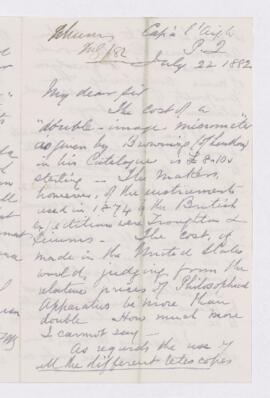 Cap à l'Aigh
P.Q
July 22 1882
My dear Sir
The cost of a
"double-image micrometer"
as given by Browning (of London)
in his Catalogue is £8-10s
sterling — The makers,
however, of the instruments
used in 1874 in the British
Expeditions were Troughton &
Simms — The cost, if
made in the United States
would, judging from the
relative prices of Philosophical
Apparatus be more than
double. How much more
I cannot say —
As regards the use of
all the different telescopes